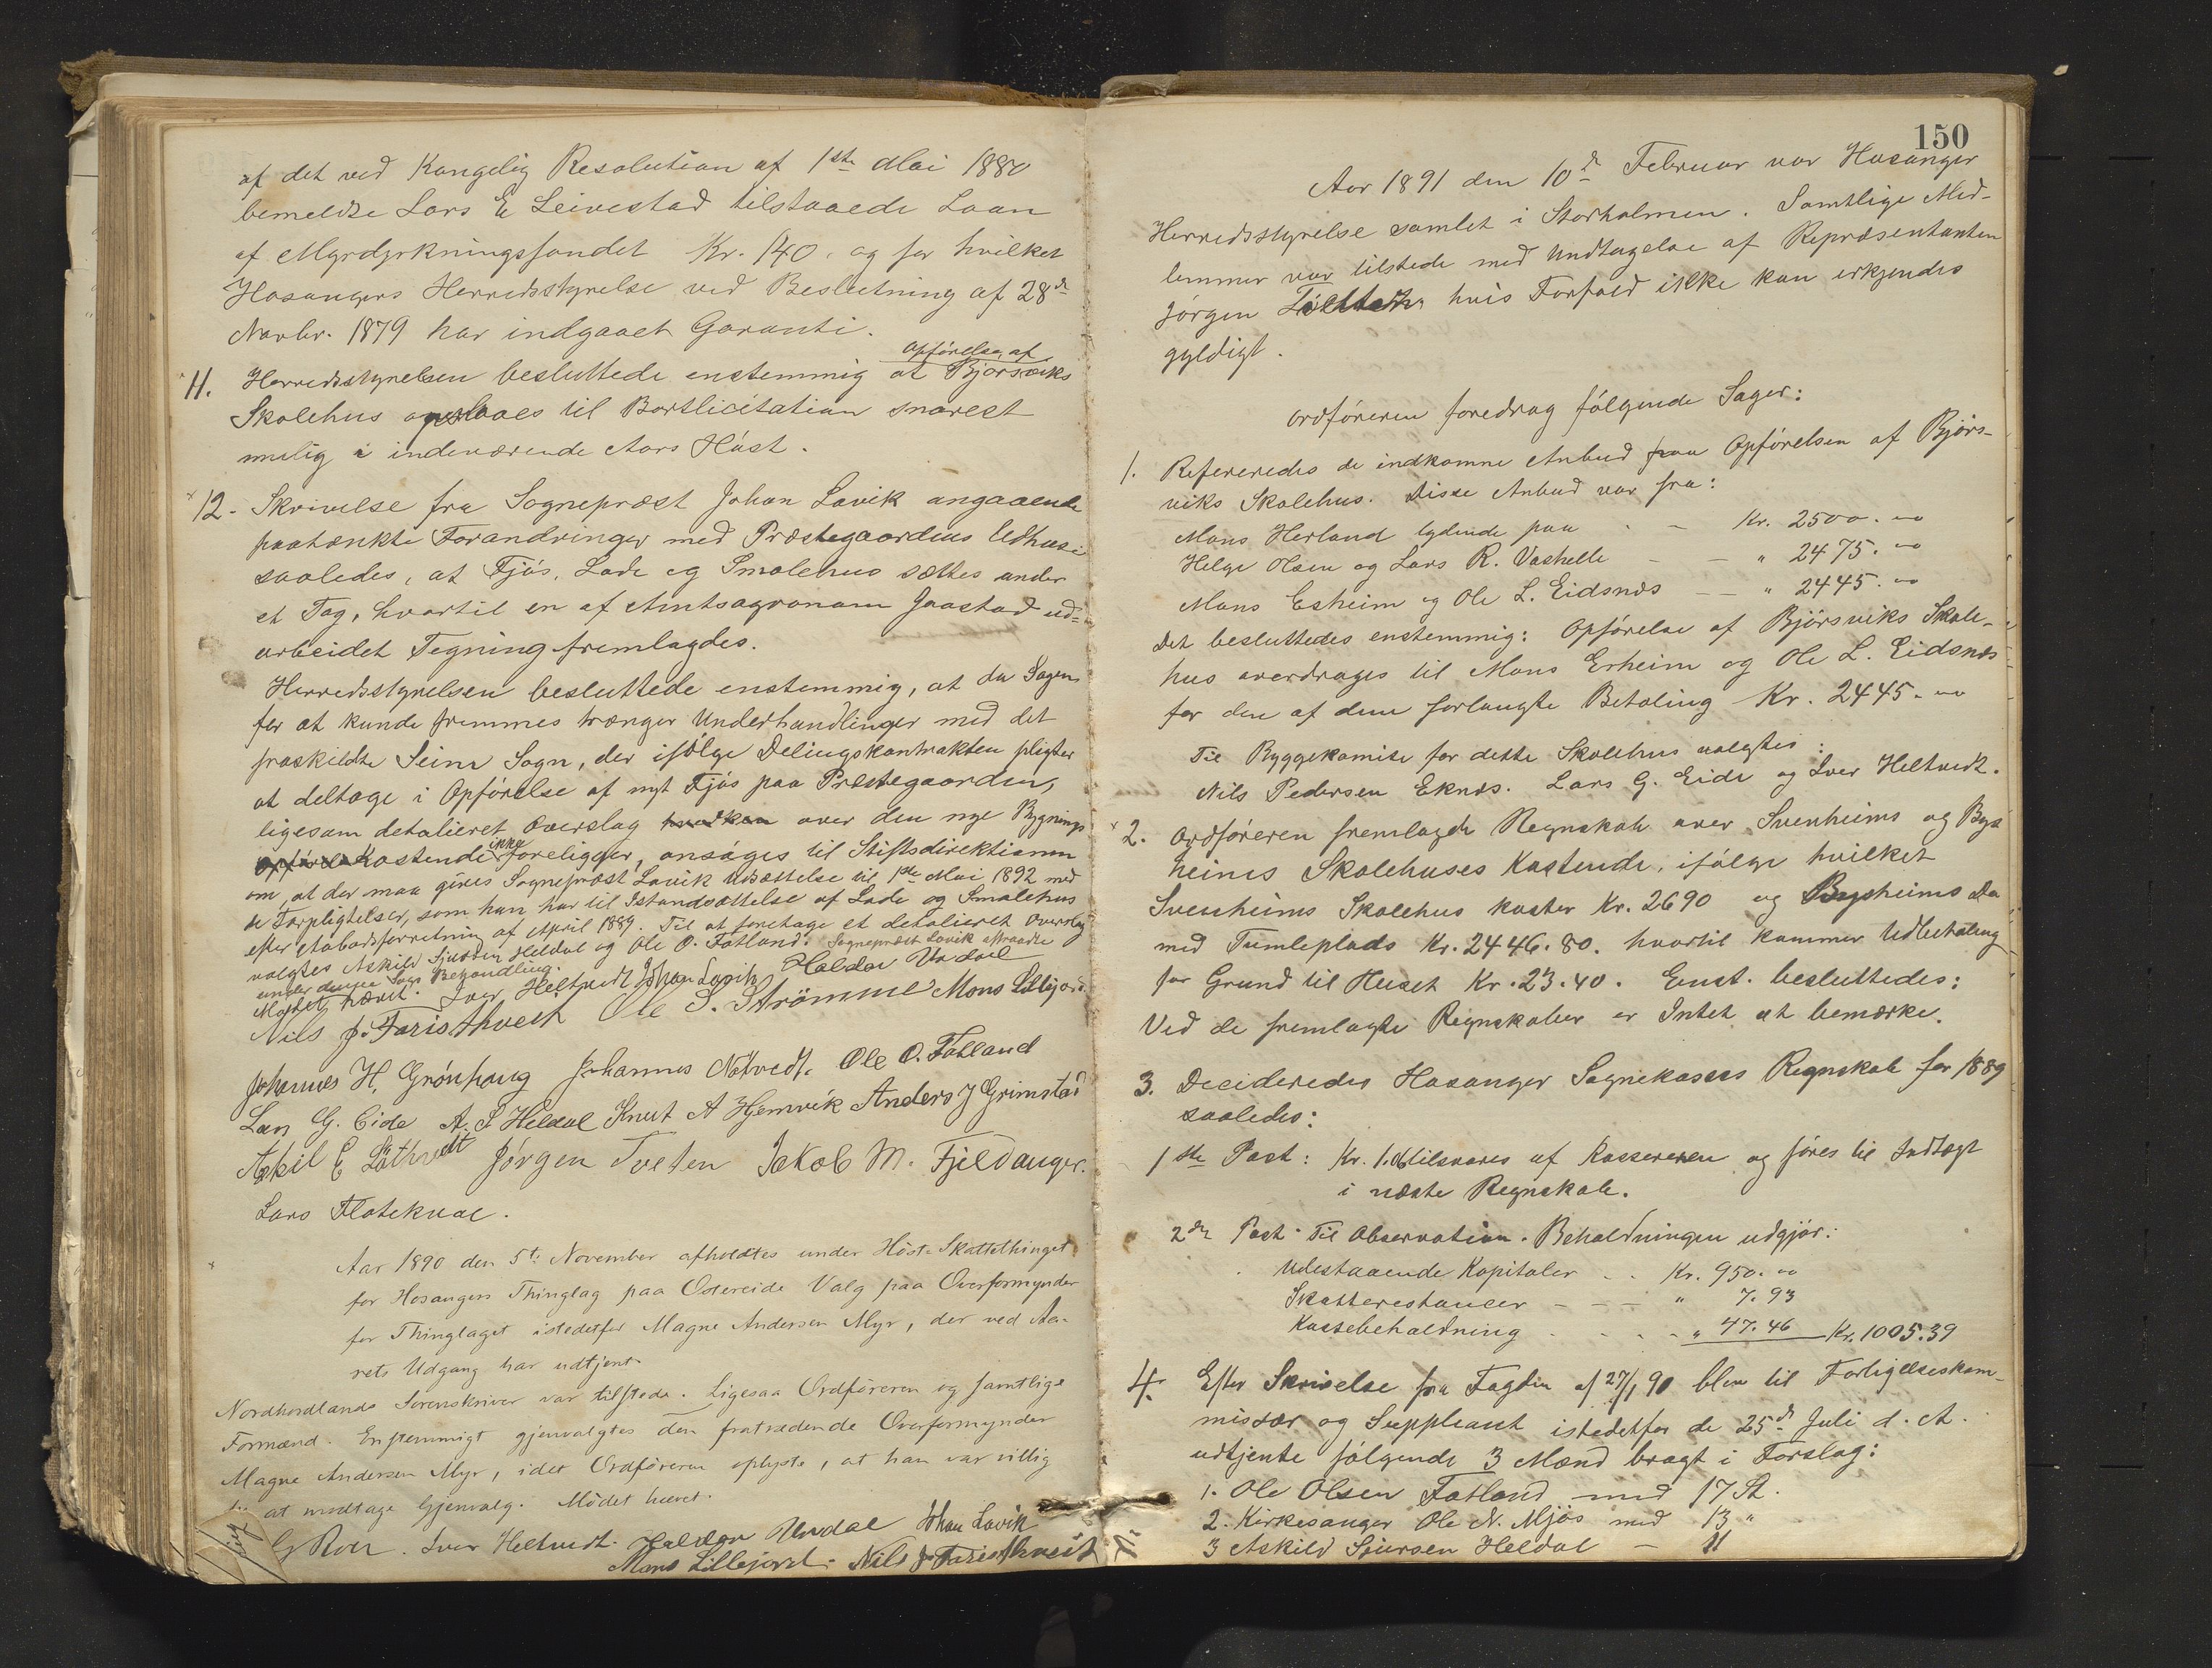 af det ved Kongelig Resolution af 1ste Mai 1880
bemeldte Lars E Leivestad tilstaaede Laan
af Myrdyrkningsfondet Kr. 140, og for hvilket
Hosangers Herredsstyrelse ved Beslutning af 28de
Novbr. 1879 har indgaaet Garanti.
Opførelsen af
11. Herredsstyrelsen besluttede enstemmig at Bjørsviks
Skolehus opslaaes til Bortlicitation snarest
mulig i indeværende Aars Høst.
12. Skrivelse fra Sognepræst Johan Lavik angaaende
paatænkte Forandringer med Præstegaardens Udhuse
saaledes, at Fjøs, Lade og Smalehus sættes under
et Tag, hvortil en af Amtsagronom Jaastad ud-
arbeidet Tegning fremlagdes.
Herredsstyrelsen besluttede enstemmig, at da Sagen
for at kunde fremmes trænger Underhandlinger med det
fraskildte Seim Sogn, der ifølge Delingskontrakten pligter
at deltage i Opførelse af nyt Fjøs paa Præstegaarden,
ligesom detalieret Overslag over den nye Bygnings
Kostende ikke foreligger, ansøges til Stiftsdirektionen
om, at der maa gives Sognepræst Lavik Udsættelse til 1ste Mai 1892 med
de Forpligtelser, som han har til Istandsættelse af Lade og Smalehus
efter Aabodsforretning af April 1889. Til at foretage et detalieret Overslag
valgtes Askild Sjursen Heldal og Ole O. Fotland. Sognepræst Lavik fraadte
under denne Sags Behandling.
Mødet hævet. Iver Heltvedt Johan Lavik Haldor Urdal
Nils J. Faristhveit Ole S. Strömme Mons Lillejord
Johannes H. Grønhaug Johannes Nötvedt. Ole O. Fotland
Lars G. Eide A. S Heldal Knut A Hjemvik Anders J Grimstad
Askil E Løthvedt Jørgen Tveten Jakob M. Fjeldanger.
Lars Flatekval.
Aar 1890 den 5te November afholdtes under Høst-Skattethinget
for Hosangers Thinglag paa Ostereide Valg paa Overformynder
for Thinglaget istedetfor Magne Andersen Myr, der ved Aa-
rets Udgang har udtjent.
Nordhordlands Sorenskriver var tilstede. Ligesaa Ordføreren og samtlige
Formænd. Enstemmigt gjenvalgtes den fratrædende Overformynder
Magne Andersen Myr, idet Ordføreren oplyste, at han var villig
at modtage Gjenvalg. Mødet hævet.
Iver Heltvedt. Haldor Urdal Johan Lavik
Mons Lillejord. Nils J Faristhveit
150
Aar 1891 den 10de Februar var Hosanger
Herredsstyrelse samlet i Storholmen. Samtlige Med-
lemmer var tilstede med Undtagelse af Repræsentanten
Jørgen hvis Forfald ikke kan erkjendes
gyldigt.
Ordføreren foredrag følgende Sager:
1. Refereredes de indkomne Anbud paa Opførelsen af Bjørs-
viks Skolehus. Disse Anbud var fra:
Mons Herland lydende paa - - Kr. 2500.00
Helge Olsen og Lars R. Vashelle - - " 2475.00
Mons Esheim og Ole L. Eidsnes - - " 2445.00
Det besluttedes enstemmig: Opførelse af Bjørsviks Skole-
hus overdrages til Mons Esheim og Ole L. Eidsnes
for den af dem forlangte Betaling Kr. 2445.00
Til Byggekomite for dette Skolehus valgtes:
Nils Pedersen Eknes. Lars G. Eide og Iver Heltvedt.
2. Ordføreren fremlagde Regnskab over Svenheims og Bys
heims Skolehuses Kostende, ifølge hvilket
Svenheims Skolehus koster Kr. 2690 og Bysheims Do
med Tumleplads Kr. 2446.80. hvortil kommer Udbetaling
for Grund til Huset Kr. 23.40. Enst. besluttedes:
Ved de fremlagte Regnskaber er Intet at bemærke.
3. Decideredes Hosanger Sognekasses Regnskab for 1889
saaledes:
1ste Post: Kr. 1.06 tilsvares af Kassereren og føres til Indtægt
i næste Regnskab.
2den Post: Til Observation. Beholdningen udgjør:
Udestaaende Kapitaler - - Kr. 950.00
Skatterestancer - - - " 7.93
Kassebeholdning - - - " 47.46 Kr. 1005.39
4. Efter Skrivelse fra Fogden af 27/1 90 blev til Forligelseskom-
missær og Suppleant istedetfor de 25de Juli d. A.
udtjente følgende 3 Mænd bragt i Forslag:
1. Ole Olsen Fotland med 17 St.
2. Kirkesanger Ole N. Mjøs med 13 "
3 Askild Sjursen Heldal - 11